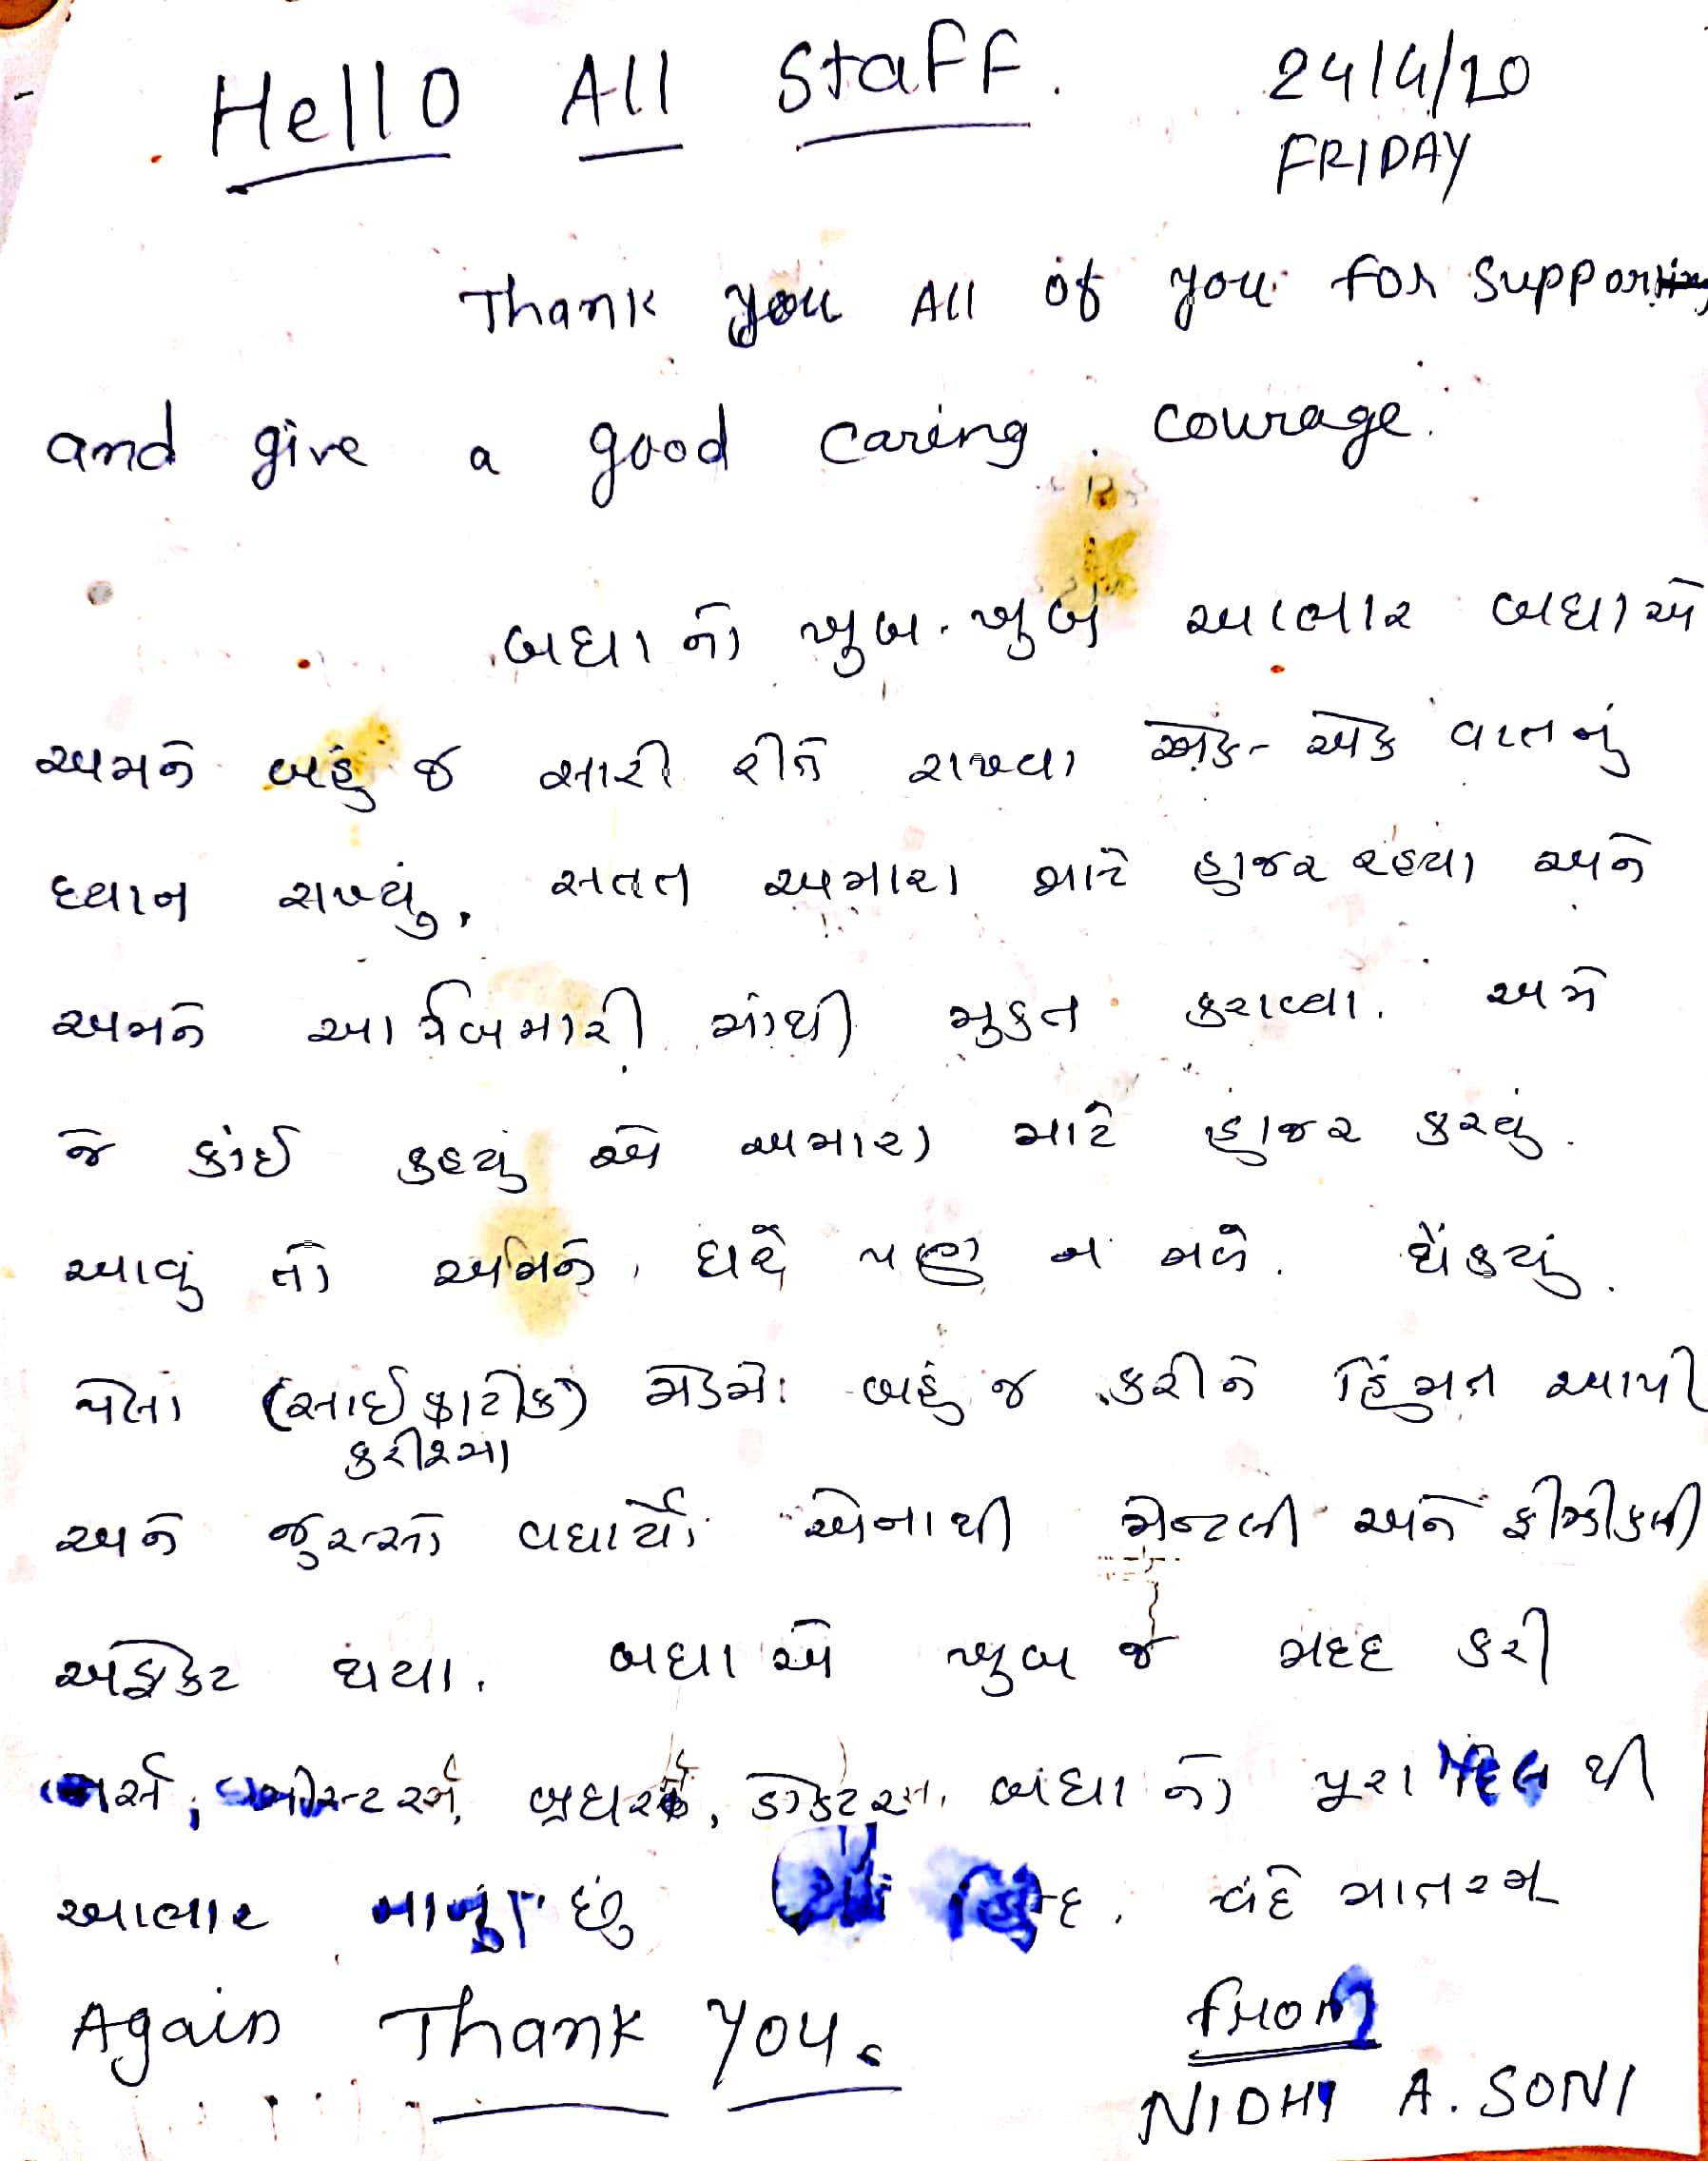 Hello All Staff. 24/4/20
FRIDAY
Thank you All of you for Supporting
and give a good caring. courage.
બધાનો ખુબ. ખુબ આભાર બધાએ
અમને બહું જ સારી રીતે રાખ્યા એક- એક વાતનું
ધ્યાન રાખ્યું, સતત અમારા માટે હાજર રહયા અને
અમને આ બિમારી માંથી મુકત કરાવ્યા. અમે
જે કાંઈ કહયું એ અમારા માટે હાજર કરવું.
આવું તો અમને, ઘરે પણ ન મળે. થેંકયું.
પેલા (સાઈકાટીક) મેડમે બહું જ કરીને હિંમત આપી
કરીશ્મા
અને જુસ્સો વધાર્યો એનાથી મેન્ટલી અને ફીઝીકલી
થયા. બધાએ ખુબ જ મદદ કરી
નર્સ, બ્રધર્સ, ડોકટર્સ, બધાનો પૂરા દિલ થી
આભાર માનું છું હિન્દ. વંદે માતરમ્
Again Thank you. from
NIDHI A. SONI